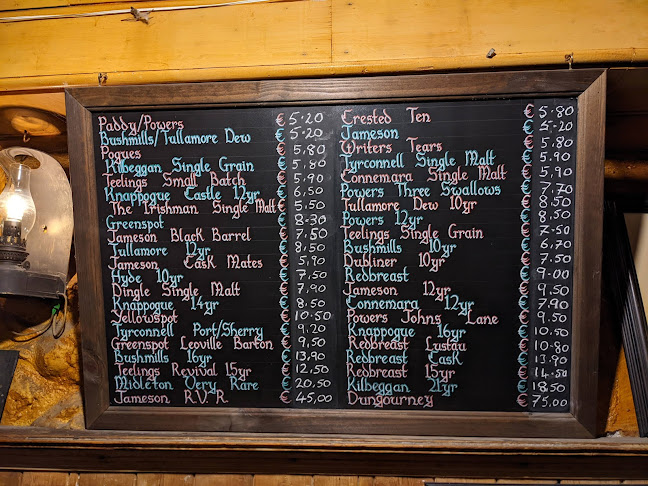 Paddy/Powers € 5.20
Bushmills/Tullamore Dew € 5.20
Pogues € 5.80
Kilbeggan Single Grain € 5.80
Teelings Small Batch € 5.90
Knappogue Castle 12yr € 6.50
The Irishman Single Malt € 5.50
Greenspot € 8.30
Jameson Black Barrel € 7.50
Tullamore 12yr € 8.50
Jameson Cask Mates € 5.90
Hyde 10yr € 7.50
Dingle Single Malt € 7.90
Knappogue 14yr € 8.50
Yellowspot € 10.50
Tyrconnell Port/Sherry € 9.20
Greenspot Leoville Barton € 9.50
Bushmills 16yr € 13.90
Teelings Revival 15yr € 12.50
Midleton Very Rare € 20.50
Jameson R.V.R. € 45.00
Crested Ten € 5.80
Jameson € 5.20
Writers Tears € 5.80
Tyrconnell Single Malt € 5.90
Connemara Single Malt € 5.90
Powers Three Swallows € 7.70
Tullamore Dew 10yr € 8.50
Powers 12yr € 8.50
Teelings Single Grain € 7.50
Bushmills 10yr € 6.70
Dubliner 10yr € 7.50
Redbreast € 9.00
Jameson 12yr € 9.50
Connemara 12yr € 7.90
Powers Johns Lane € 9.50
Knappogue 16yr € 10.50
Redbreast Lustau € 10.80
Redbreast Cask € 13.90
Redbreast 15yr € 14.50
Kilbeggan 21yr € 18.50
Dungourney € 75.00